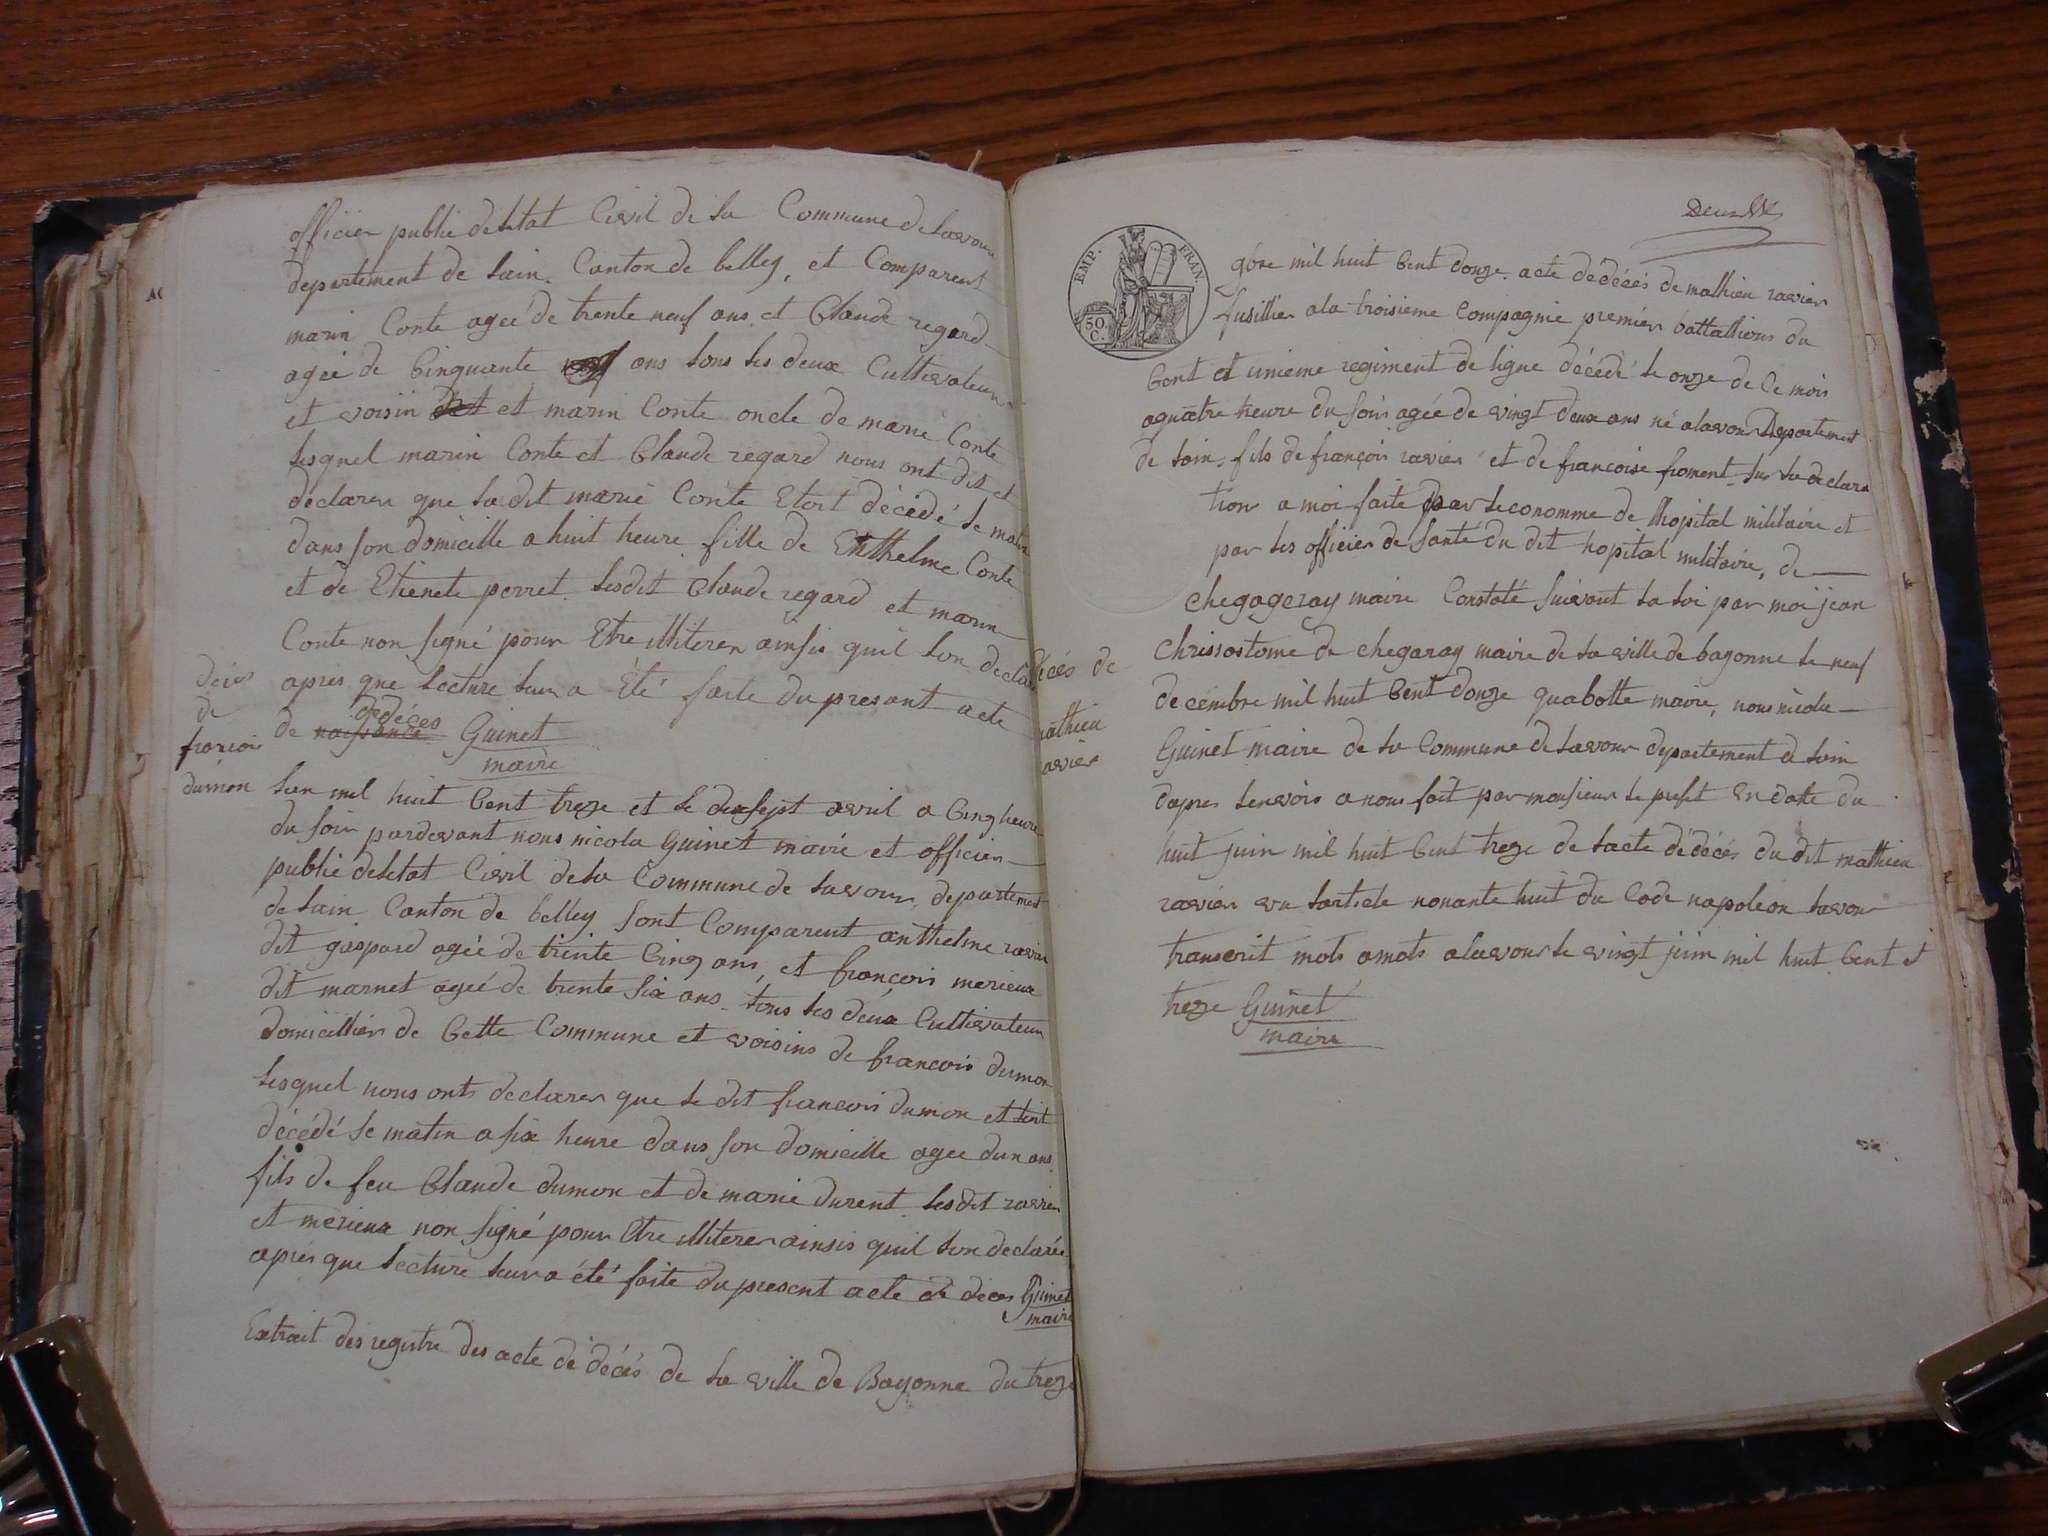 officier public deletat Civil de la Commune de lavour
departement de lain. Canton de belley, et Comparent
marin Conte ageé de trente neuf ans et Claude regard
ageé de Cinquante ans tous les deux Cultivateur
et voisin et marin Conte oncle de marie Conte
lesquel marin Conte et Claude regard nous ont dit et
declarer que la dit marie Conte Etoit décédé le matin
dans son domicille a huit heure fille de Enthelme Conte
et de Etienete perret. lesdit Claude regard et marin
Conte non signé pour Etre illiterer ainsis quil lon declaré
apres que lecture leur a Été faite du presant acte
de naissance dedéces Guinet
maire
décés
de
francois
dumon
lan mil huit Cent treze et le dixsept avril a Cinq heure
du soir pardevant nous nicola Guinet maire et officier
public deletat Civil dela Commune de lavour, departement
de lain Canton de belley sont Comparent anthelme ravier
dit gaspard ageé de trente Cinq ans, et francois merieux
dit marnet ageé de trente six ans tous les deux Cultivateur
domicillier de Cette Commune et voisins de francois dumon
lesquel nous onts declarer que le dit francois dumon et
décédé le matin a six heure dans son domicille ageé dun ans
fils de feu Claude dumon et de marie durent lesdit ravier
et merieux non signé pour Etre illiterer ainsis quil lon declarée
apres que lecture leur a été faite du present acte de deces Guinet
maire
Extrait des registre des acte de décés de la ville de Bayonne du treze
EMP. FRAN.
50
C.
9bre mil huit Cent douze. acte dedécés de mathieu ravier
fusillier ala troisieme Compagnie premier battallions du
Cent et unieme regiment de ligne décédé le onze de Ce mois
aquatre heure du soir agée de vingt deux ans né alavour Departement
de lain. fils de françois ravier et de francoise froment sur la declara
tion a moi faite par leconomme de lhopital militaire et
par les officier de santé du dit hopital militaire, de
chegageray maire Constaté suivant la loi par moi jean
Chrissostome de chegaray maire de la ville de bayonne le neuf
decembre mil huit Cent douze quabotte maire, nous nicola
Guinet maire de la Commune de lavour departement d lain
dapres lenvois a nous fait par monsieur le prefet En datte du
huit juin mil huit Cent treze de lacte dédécés du dit mathieu
ravier vu larticle nonante huit du Code napoleon lavour
transcrit mots amots alavour le vingt juin mil huit Cent et
treze Guinet
maire
décés de
mathieu
ravier